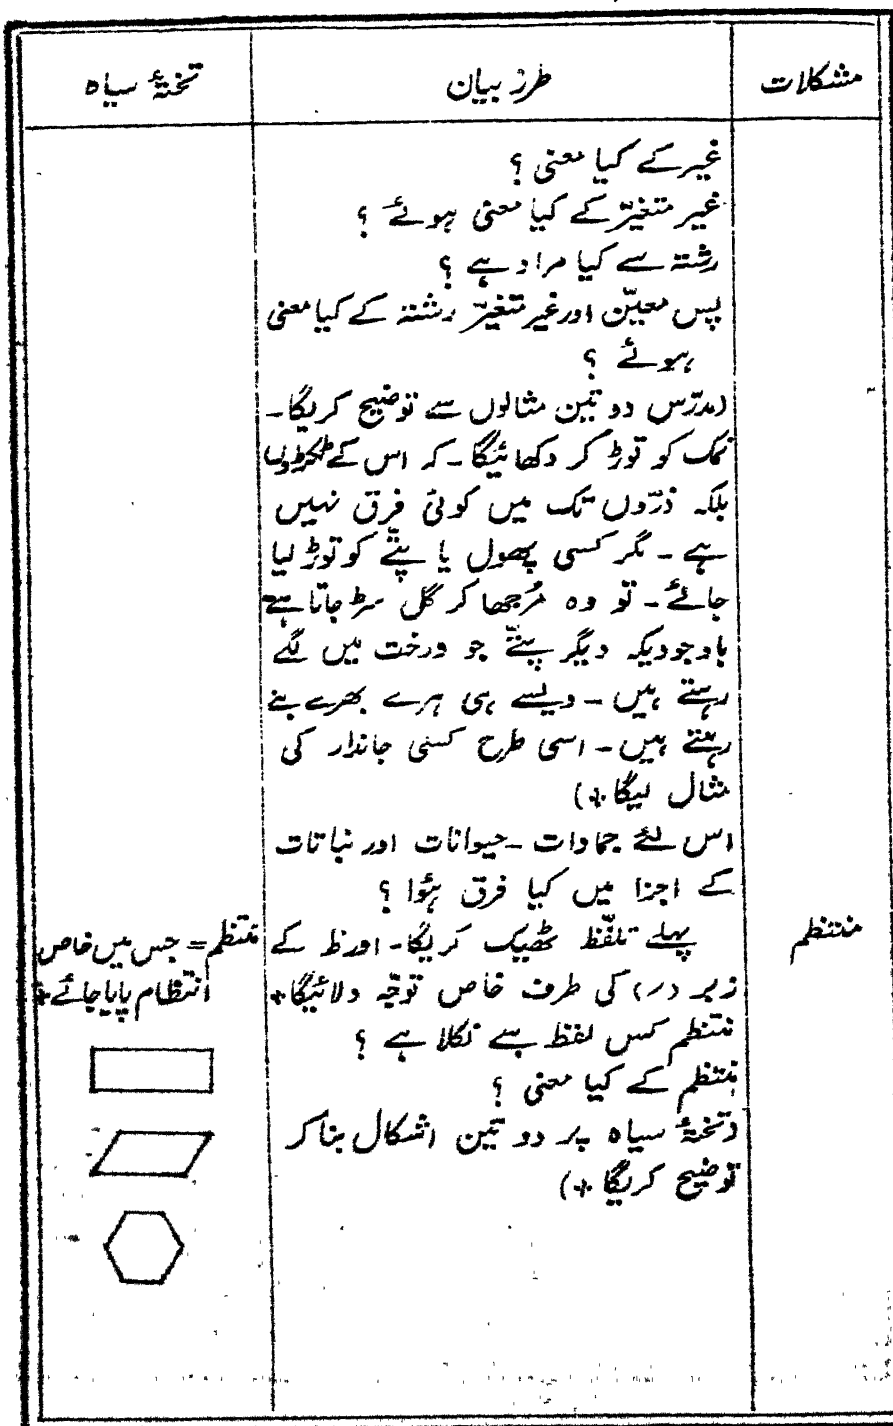 مشکلات
طرز بیان
تختۂ سیاہ
غیر کے کیا معنی ؟
غیر متغیّر کے کیا معنی ہوئے ؟
رشتہ سے کیا مراد ہے ؟
پس معیّن اور غیر متغیّر رشتہ کے کیا معنی
ہوئے ؟
(مدرّس دو تین مثالوں سے توضیح کریگا۔
نمک کو توڑ کر دکھائیگا۔ کہ اس کے ٹکڑوں
بلکہ ذرّوں تک میں کوئی فرق نہیں
ہے ۔ مگر کسی پھول یا پتّے کو توڑ لیا
جائے ۔ تو وہ مُرجھا کر گل سڑ جاتا ہے
باوجودیکہ دیگر پتّے جو درخت میں لگے
رہتے ہیں ۔ ویسے ہی ہرے بھرے بنے
رہتے ہیں ۔ اسی طرح کسی جاندار کی
مثال لیگا ٭)
اس لئے جمادات ۔ حیوانات اور نباتات
کے اجزا میں کیا فرق ہؤا ؟
منتظم
پہلے تلفّظ ٹھیک کریگا ۔ اور ظ کے
زیر (ـِ) کی طرف خاص توجّہ دلائیگا ٭
منتظم کس لفظ سے نکلا ہے ؟
منتظم کے کیا معنی ؟
(تختۂ سیاہ پر دو تین اشکال بنا کر
توضیح کریگا ٭)
منتظم = جس میں خاص
انتظام پایا جائے ٭